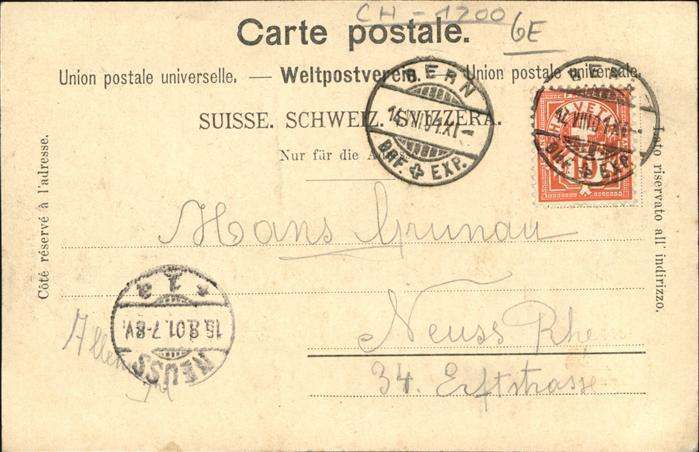 CH - 1200
GE
Carte postale.
Union postale universelle. — Weltpostverein. — Union postale universale.
SUISSE. SCHWEIZ. SVIZZERA.
Nur für die
Côté réservé à l'adresse.
Lato riservato all' indirizzo.
BERN
BRF. EXP.
BERN
EXP.
HELVETIA
10
Hans Grunau
Neuss
34. Erftstrasse
NEUSS
15.8.01.7-8V.
1 a